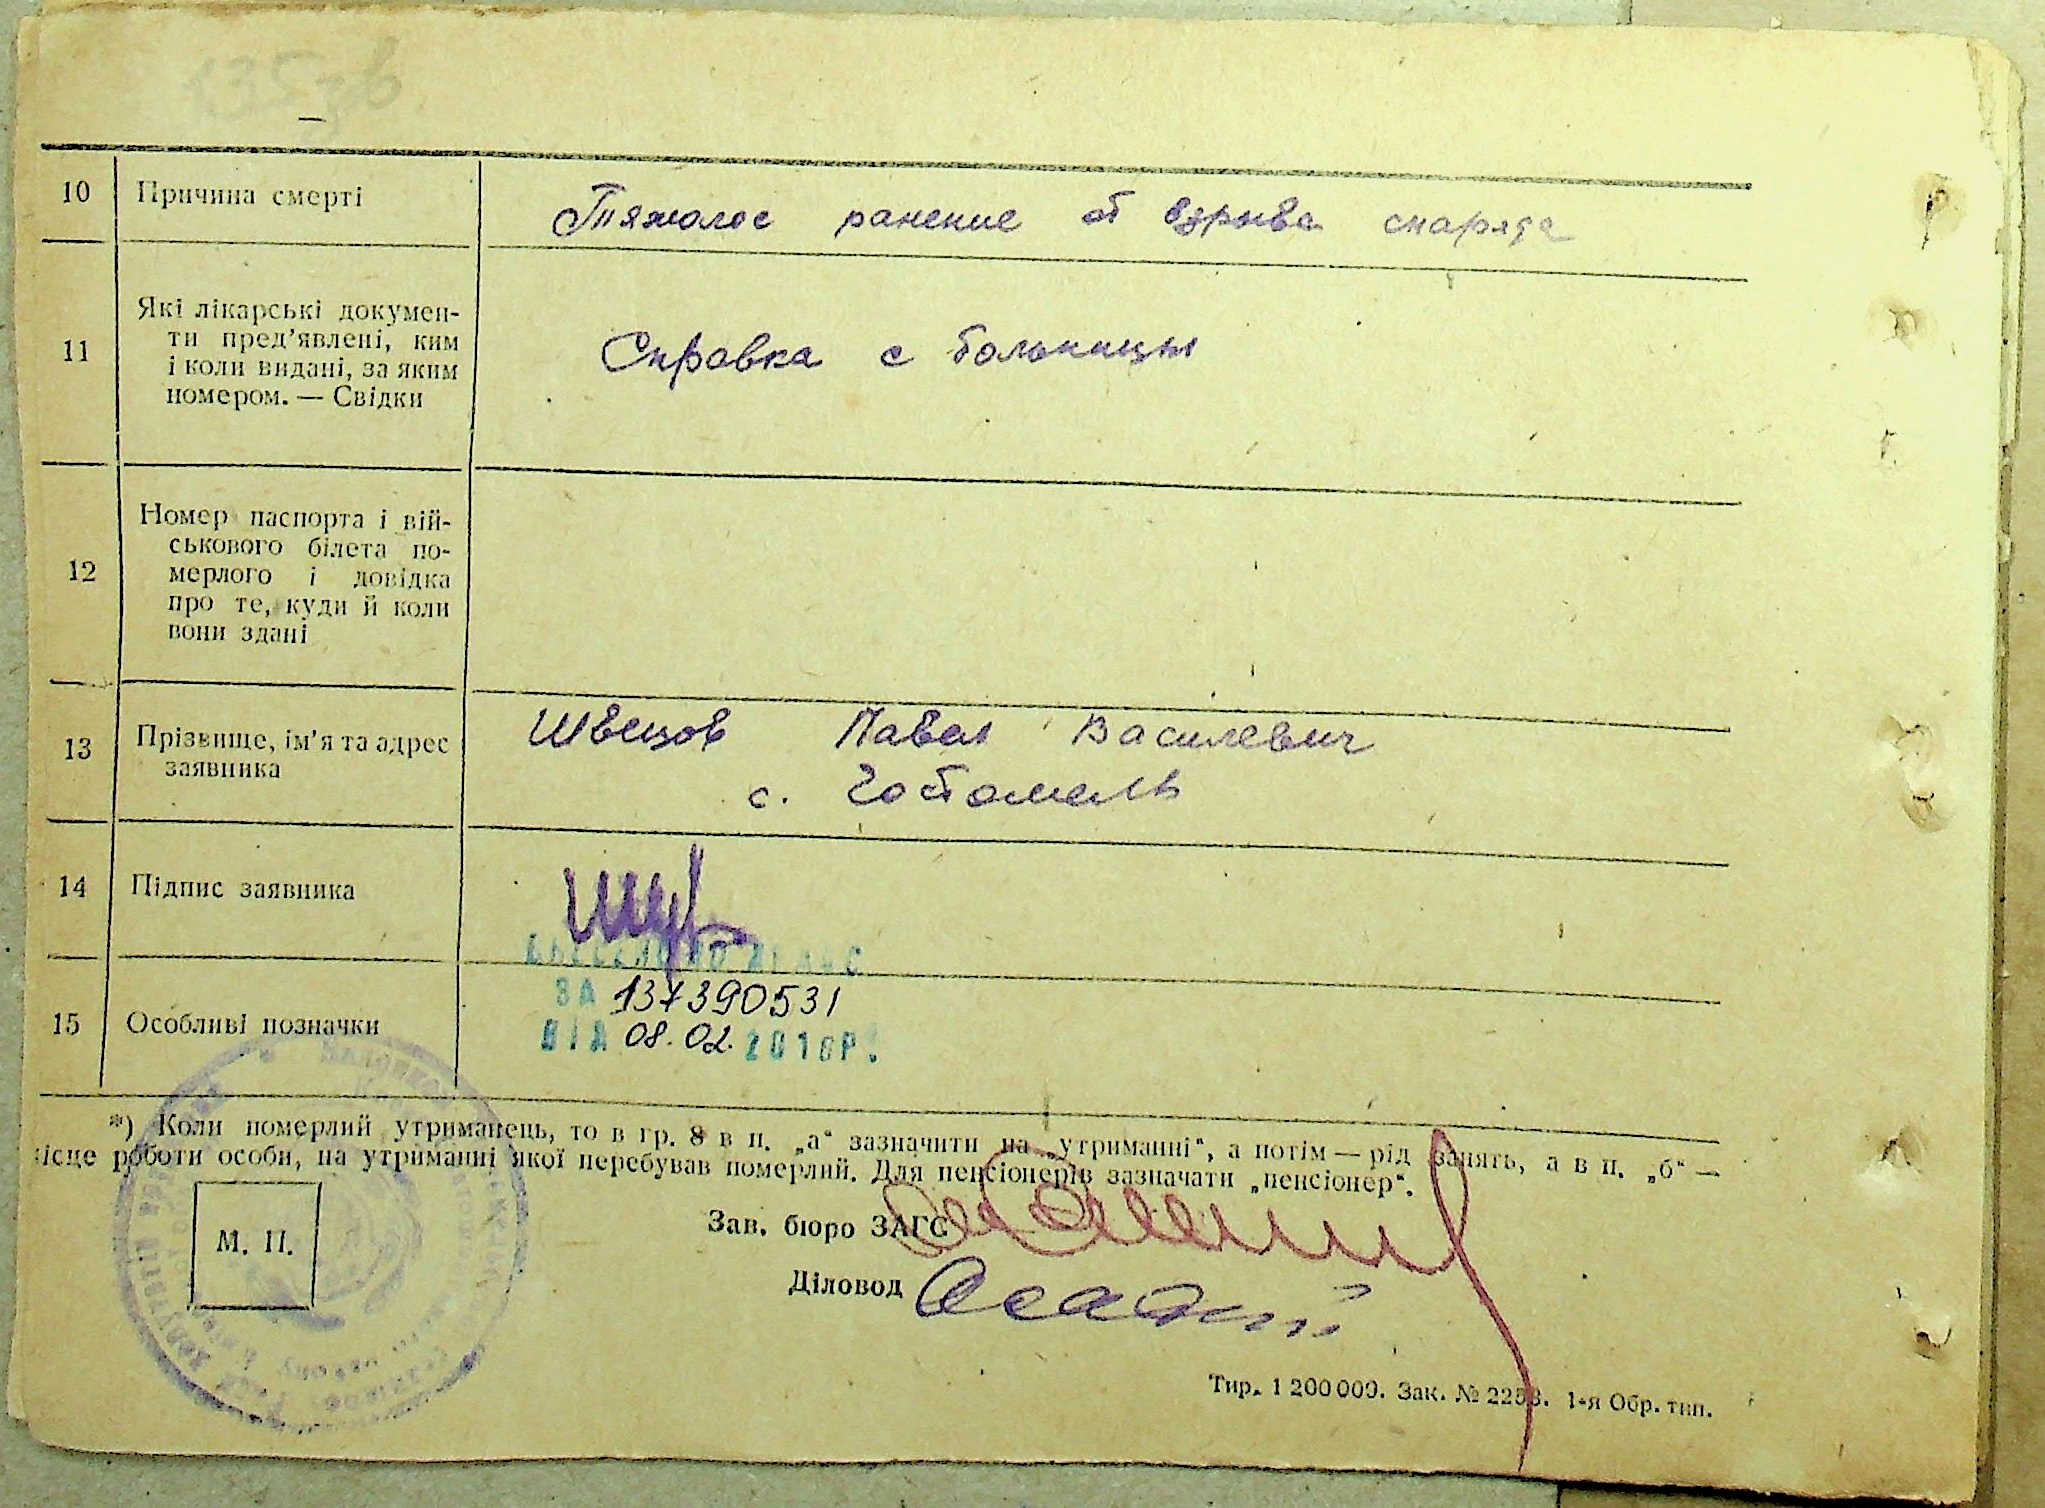 10 Причина смерті Тяжолое ранение от взрыва снаряда
11 Які лікарські докумен-
ти пред’явлені, ким
і коли видані, за яким
номером. — Свідки
Справка с больницы
12 Номер паспорта і вій-
ськового білета по-
мерлого і довідка
про те, куди й коли
вони здані
13 Прізвище, ім’я та адрес
заявника
Швецов Павел Василевич
с. Гостомель
14 Підпис заявника
15 Особливі позначки
ЗА 137390531
ВІД 08.02. 2010Р.
*) Коли померлий утриманець, то в гр. 8 в п. „а“ зазначити на „утриманні“, а потім — рід занять, а в п. „б“ —
місце роботи особи, на утриманні якої перебував померлий. Для пенсіонерів зазначати „пенсіонер“.
М. П.
Зав. бюро ЗАГС
Діловод
Тир. 1 200 000. Зак. № 2253. 1-я Обр. тип.